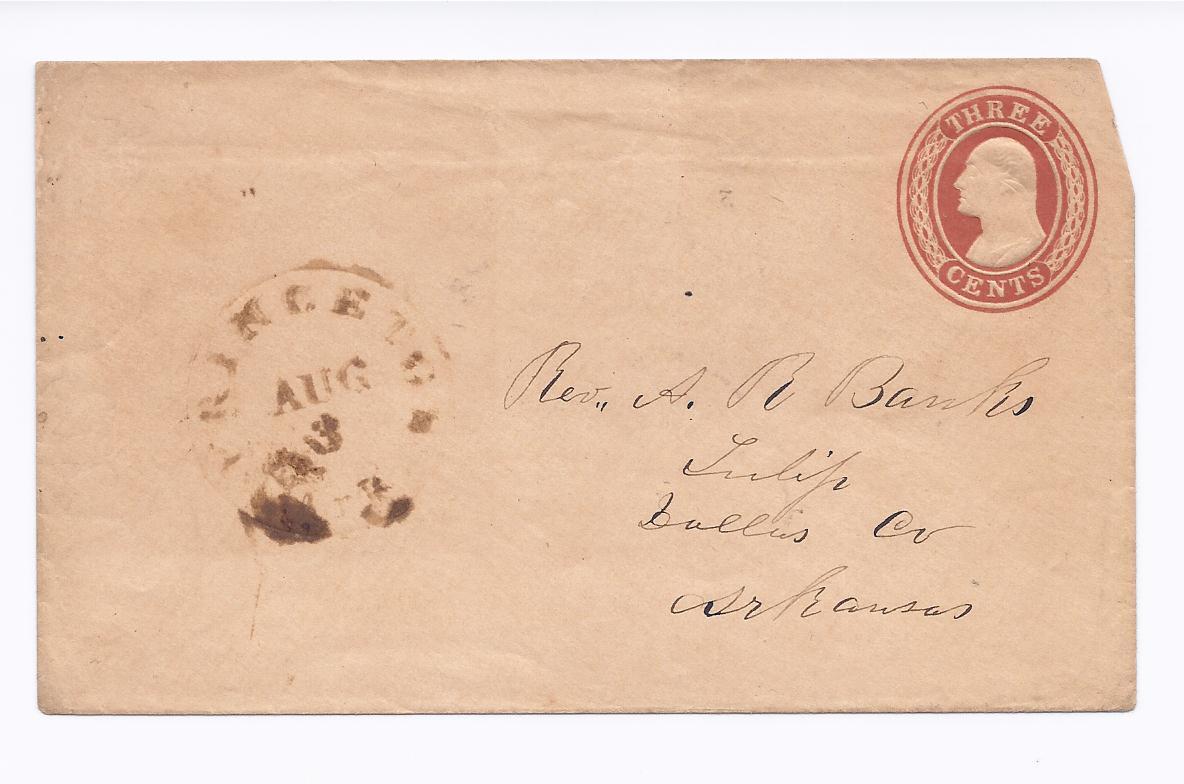 THREE
CENTS
PRINCETO
AUG
Rev,, A. R Banks
Tulip
Dallas Co
Arkansas